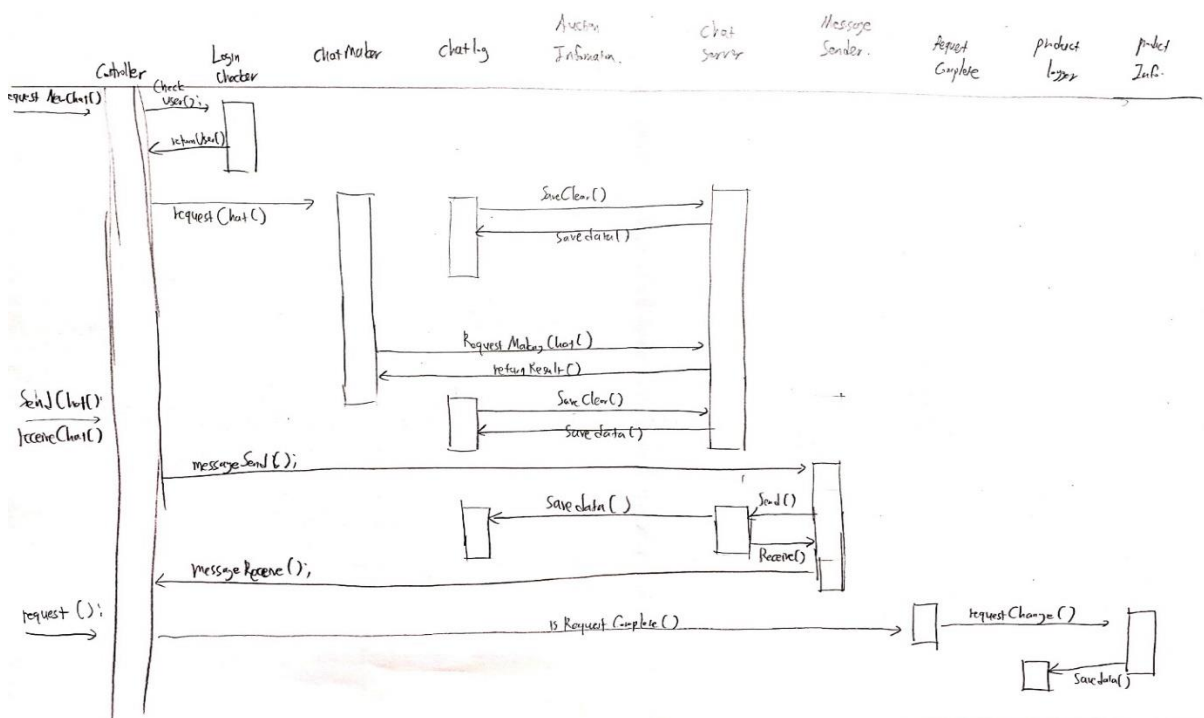 Controller
Login
Checker
Chat Maker
Chat log
Auction
Information.
Chat
Server
Message
Sender.
Request
Complete
product
logger
product
Info.
request NewChat()
Check
User();
returnUser()
requestChat()
SaveClear()
Save data()
Request Making Chat()
return Result()
SendChat();
receiveChat()
SaveClear()
Save data()
messageSend();
Save data()
Send()
Receive()
messageReceive();
request();
is Request Complete()
requestChange()
Save data()